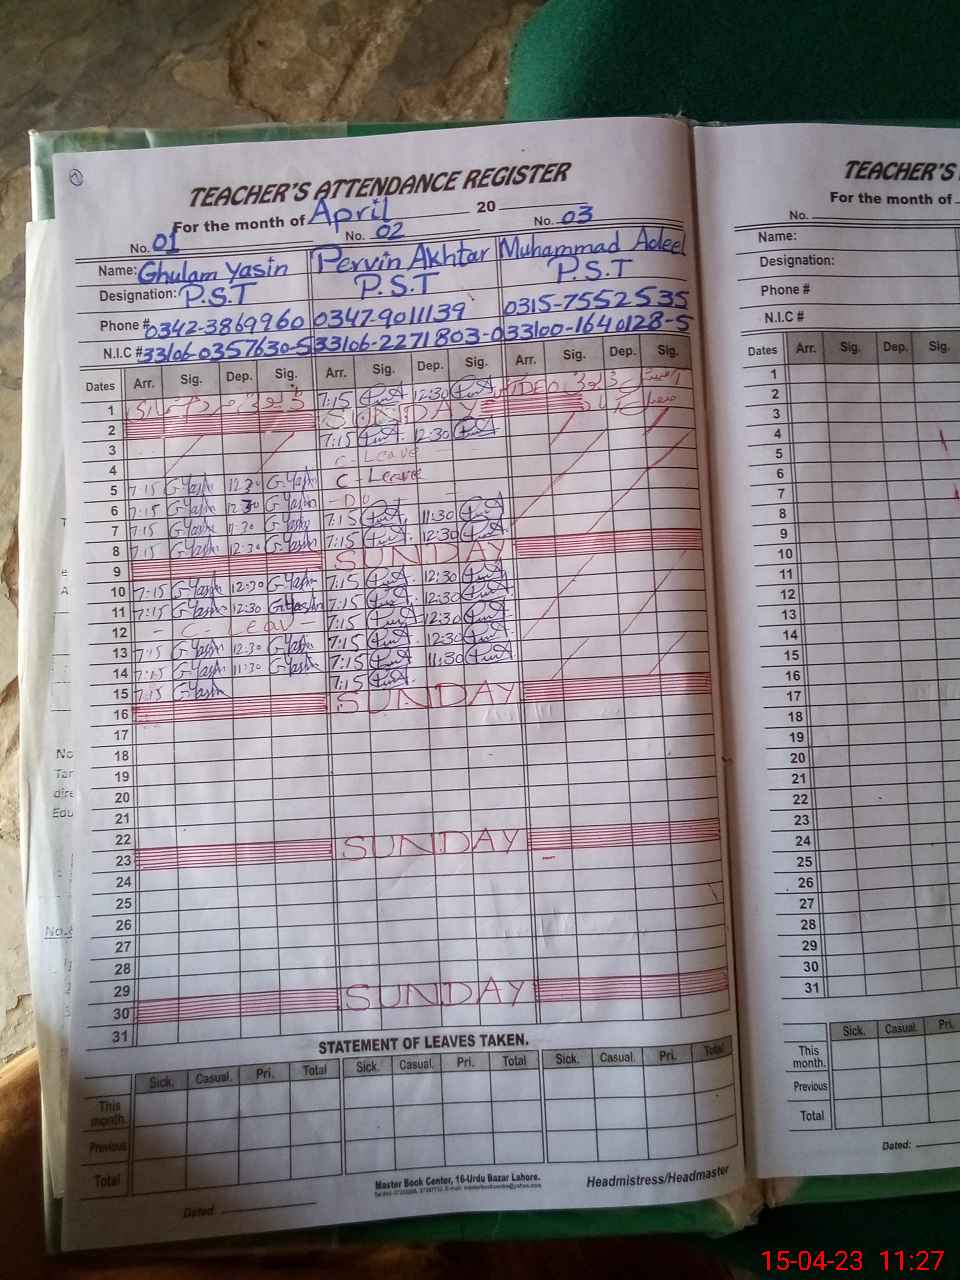 TEACHER'S ATTENDANCE REGISTER
For the month of April 20
No. 01 No. 02 No. 03
Name: Ghulam Yasin Pervin Akhtar Muhammad Adeel
Designation: P.S.T P.S.T P.S.T
Phone # 0342-3869960 0347-9011139 0315-7552535
N.I.C # 33106-0357630-5 33106-2271803-0 33100-1640128-5
Dates Arr. Sig. Dep. Sig. Arr. Sig. Dep. Sig. Arr. Sig. Dep. Sig.
1 7:15 12:30
2 SUNDAY
3 7:15 12:30
4 C-Leave
5 7:15 G.Yasin 12:30 G.Yasin C-Leave
6 7:15 G.Yasin 12:30 G.Yasin - DO -
7 7:15 G.Yasin 11:30 G.Yasin 7:15 11:30
8 7:15 G.Yasin 12:30 G.Yasin 7:15 12:30
9 SUNDAY
10 7:15 G.Yasin 12:30 G.Yasin 7:15 12:30
11 7:15 G.Yasin 12:30 G.Yasin 7:15 12:30
12 - C - Leav - 7:15 12:30
13 7:15 G.Yasin 12:30 G.Yasin 7:15 12:30
14 7:15 G.Yasin 11:30 G.Yasin 7:15 11:30
15 7:15 G.Yasin 7:15
16 SUNDAY
17
18
19
20
21
22
23 SUNDAY
24
25
26
27
28
29
30 SUNDAY
31
STATEMENT OF LEAVES TAKEN.
Sick. Casual. Pri. Total Sick. Casual. Pri. Total Sick. Casual. Pri. Total
This month.
Previous
Total
Master Book Center, 16-Urdu Bazar Lahore.
Headmistress/Headmaster
Dated:
TEACHER'S
For the month of
No.
Name:
Designation:
Phone #
N.I.C #
Dates Arr. Sig. Dep. Sig.
1
2
3
4
5
6
7
8
9
10
11
12
13
14
15
16
17
18
19
20
21
22
23
24
25
26
27
28
29
30
31
Sick. Casual. Pri.
This month.
Previous
Total
Dated:
15-04-23 11:27